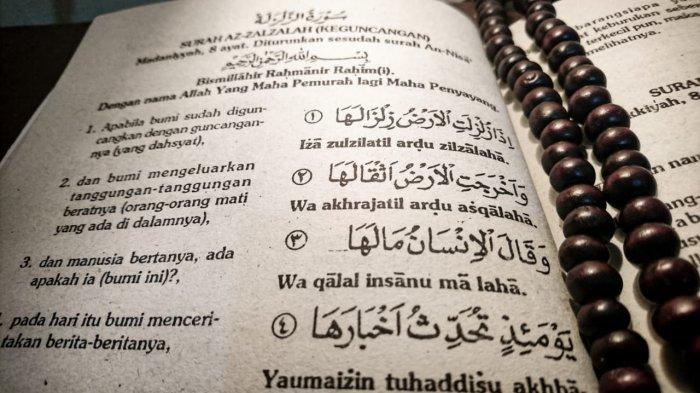 سُوْرَةُ الزَّلْزَلَةِ
SURAH AZ-ZALZALAH (KEGUNCANGAN)
Madaniyyah, 8 ayat. Diturunkan sesudah surah An-Nisā'
بِسْمِ اللهِ الرَّحْمٰنِ الرَّحِيْمِ
Bismillāhir Raḥmānir Raḥīm(i).
Dengan nama Allah Yang Maha Pemurah lagi Maha Penyayang.
1. Apabila bumi sudah digun-
cangkan dengan guncangan-
nya (yang dahsyat),
اِذَا زُلْزِلَتِ الْاَرْضُ زِلْزَالَهَا ١
Iżā zulzilatil arḍu zilzālahā.
2. dan bumi mengeluarkan
tanggungan-tanggungan
beratnya (orang-orang mati
yang ada di dalamnya),
وَاَخْرَجَتِ الْاَرْضُ اَثْقَالَهَا ٢
Wa akhrajatil arḍu aṡqālahā.
3. dan manusia bertanya, ada
apakah ia (bumi ini)?,
وَقَالَ الْاِنْسَانُ مَالَهَا ٣
Wa qālal insānu mā lahā.
. pada hari itu bumi menceri-
takan berita-beritanya,
يَوْمَئِذٍ تُحَدِّثُ اَخْبَارَهَا ٤
Yaumaiżin tuḥaddiṡu akhbā
barangsiapa
keburukan
terkecil pun,
melihatnya.
SURA
8